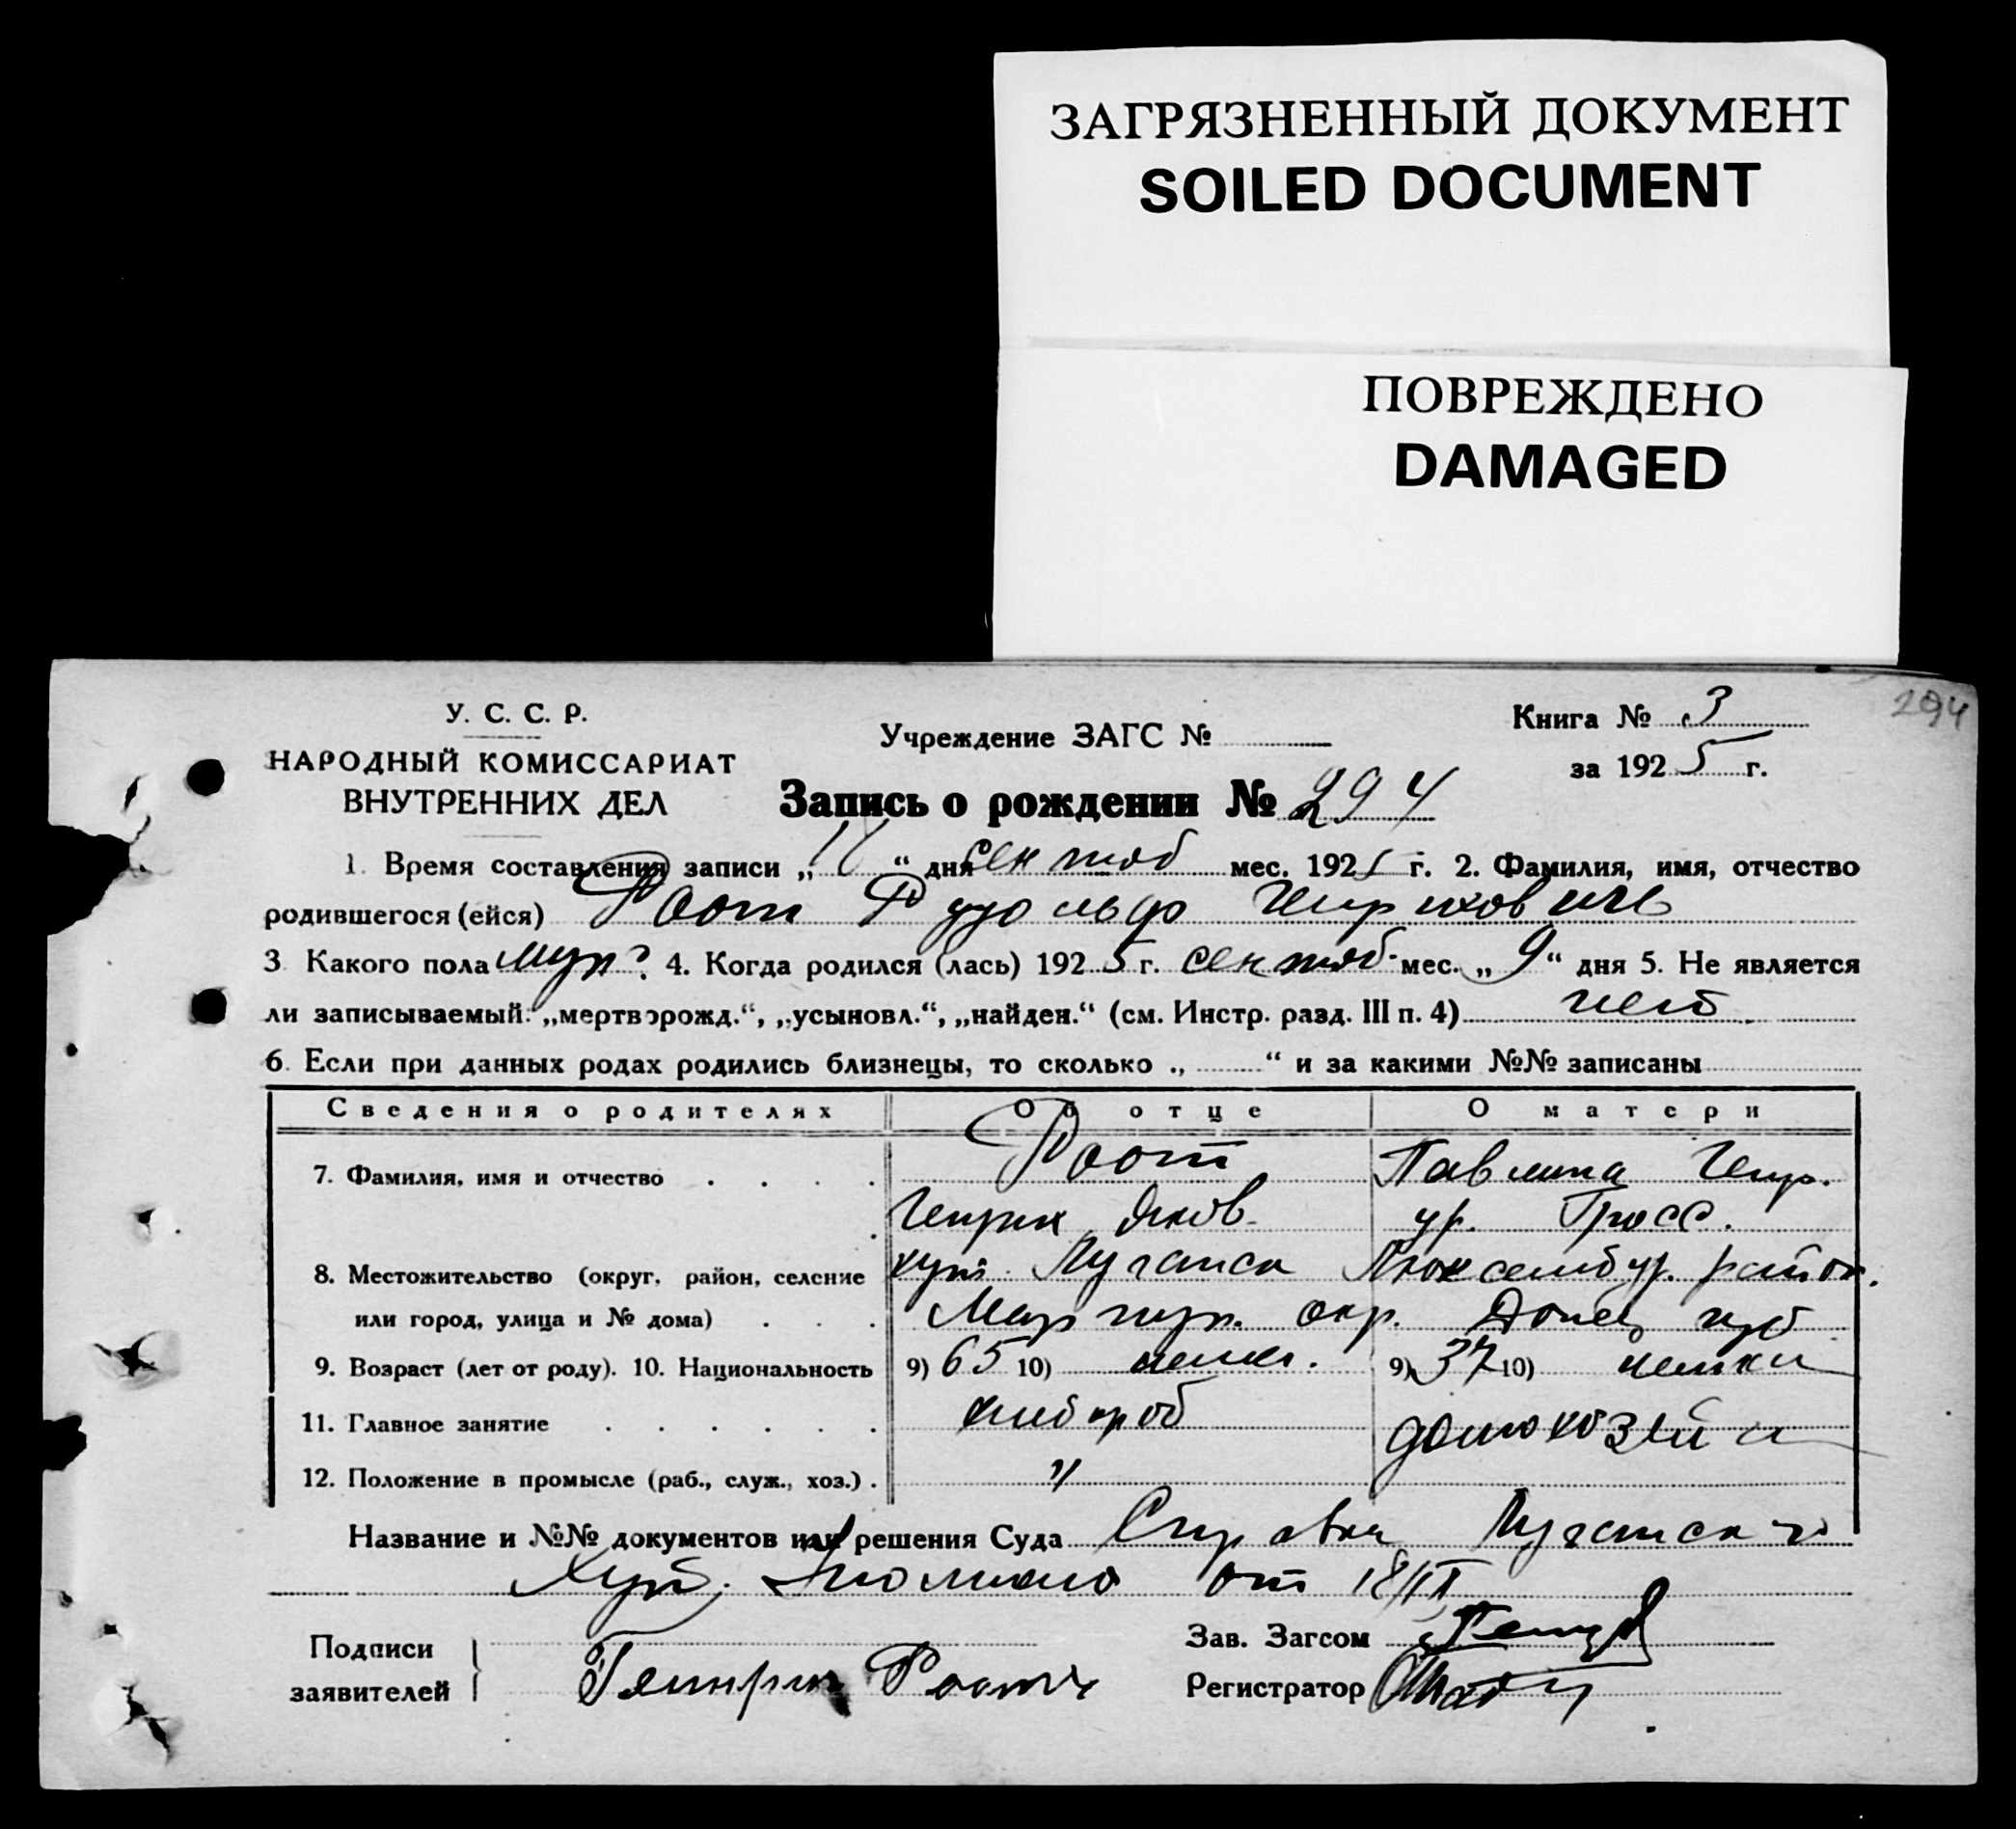 ЗАГРЯЗНЕННЫЙ ДОКУМЕНТ
SOILED DOCUMENT
ПОВРЕЖДЕНО
DAMAGED
294
У. С. С. Р.
НАРОДНЫЙ КОМИССАРИАТ
ВНУТРЕННИХ ДЕЛ
Учреждение ЗАГС №
Книга № 3
за 1925 г.
Запись о рождении № 294
1. Время составления записи „ “ дня сентяб мес. 1925 г. 2. Фамилия, имя, отчество
родившегося (ейся) Роот Рудольф Генрихович
3 Какого пола муж. 4. Когда родился (лась) 1925 г. сентяб. мес. „9“ дня 5. Не является
ли записываемый: „мертворожд.“, „усыновл.“, „найден.“ (см. Инстр. разд. III п. 4) нет
6. Если при данных родах родились близнецы, то сколько „ “ и за какими №№ записаны
Сведения о родителях Об отце О матери
7. Фамилия, имя и отчество Роот Павлина Генр.
Генрих Яков. ур. Гросс.
8. Местожительство (округ, район, селение хут. Луганск Люксембур. район.
или город, улица и № дома) Мариуп. окр. Донец. губ
9. Возраст (лет от роду). 10. Национальность 9) 65 10) немец. 9) 37 10) немка
11. Главное занятие хлебороб домохозяйка
12. Положение в промысле (раб., служ., хоз.) "
Название и №№ документов или решения Суда Справка Луганск
Хут. от 18/IX
Подписи
заявителей
Гейнрих Роот
Зав. Загсом
Регистратор